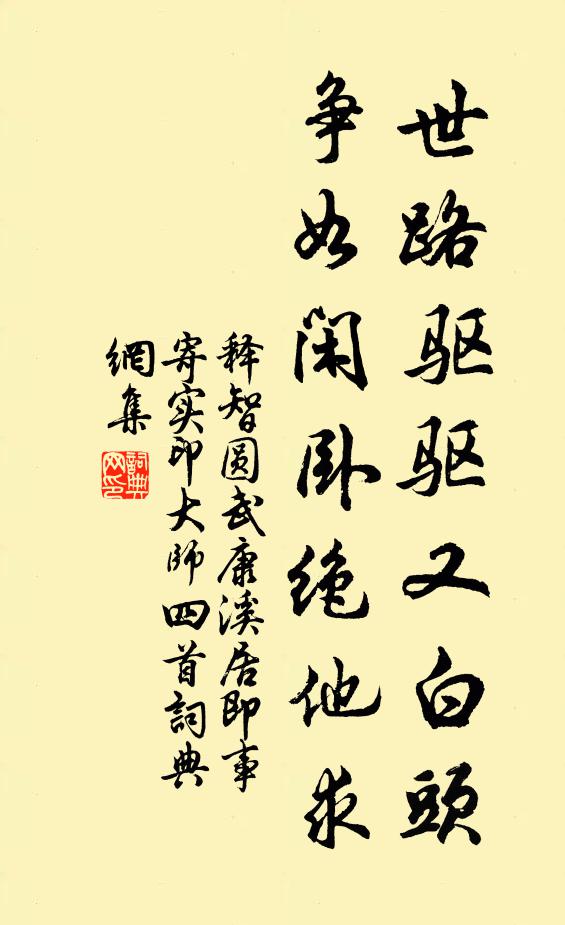 世路驱驱又白頭
争如闲卧绝他求
释智圆武康溪居即事
寄实印大师四首詞典
網集
詞典
网印